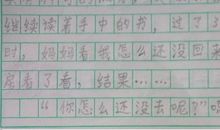 继续读着手中的书，过了
时，妈妈看我怎么还没回来
房看了看，结果……
“你怎么还没去呢？”